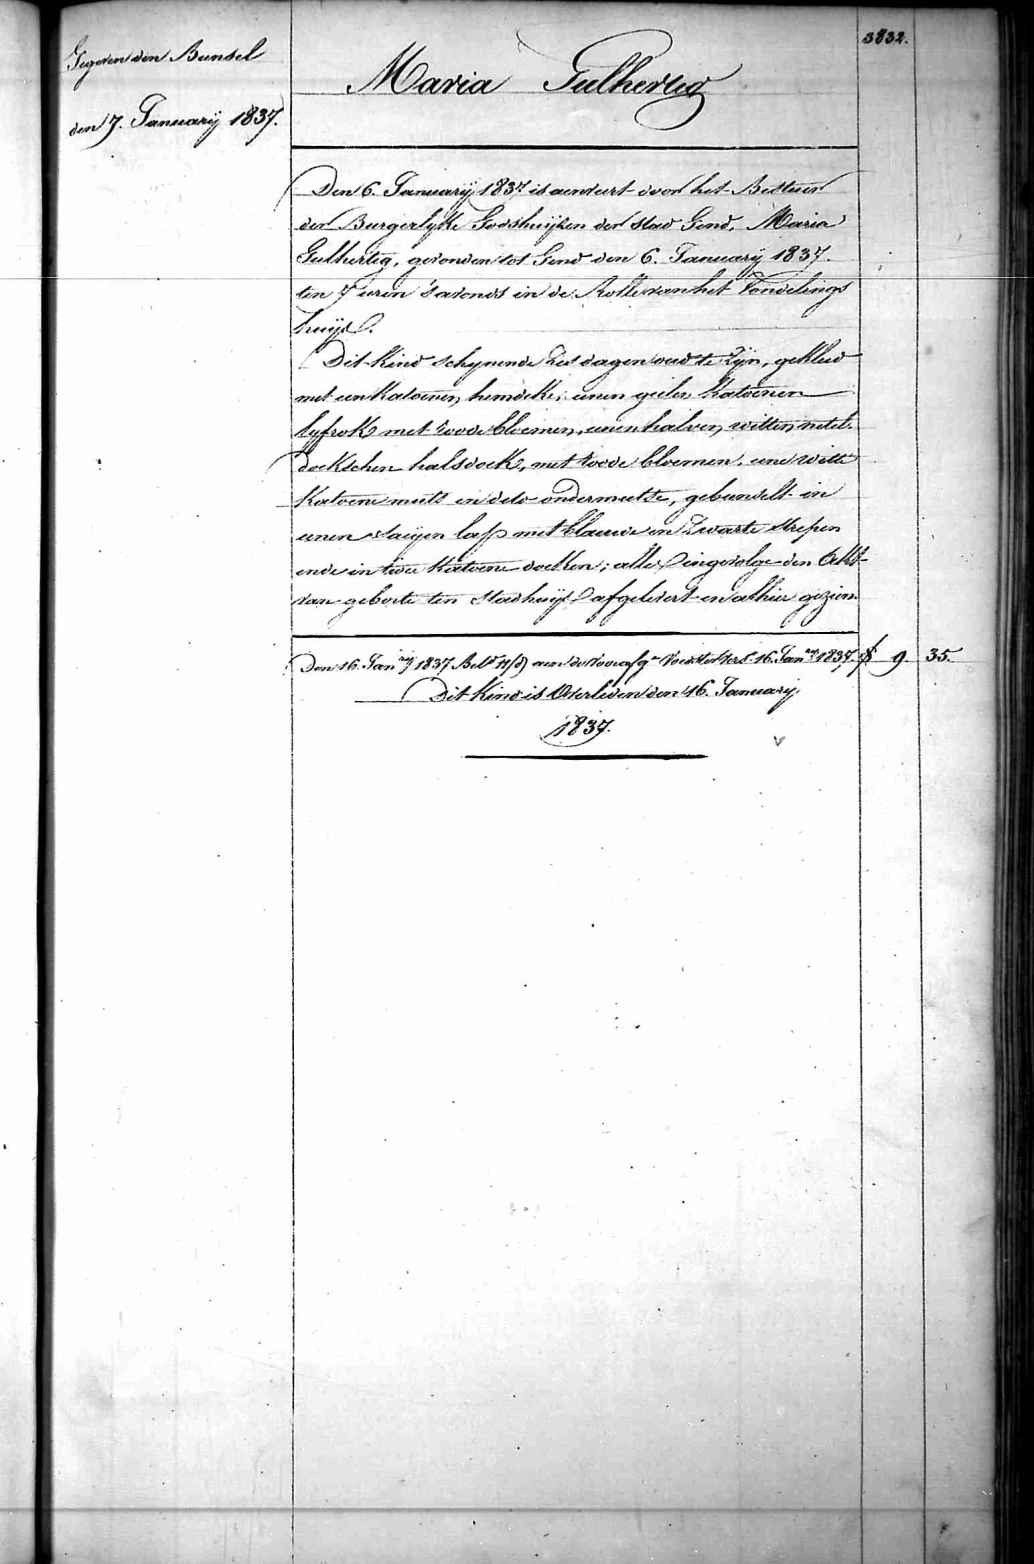 3832.
Gegeven den Bundel
den 7. January 1837.
Maria Gulhertig
Den 6. January 1837 is aenveert door het Bestuer
der Burgerlyke Godshuijzen der stad Gend, Maria
Gulhertig, gevonden tot Gend den 6. January 1837.
ten 7 uren 's avonds in de Rolle van het Vondelings
huijs.
Dit kind schynende zes dagen oud te zyn, gekleed
met een katoenen hemdeke, eenen geelen katoenen
lyfrok met roode bloemen, eenen halven witten netel-
doekschen halsdoek, met roode bloemen, eene witte
katoene muts en dito ondermutse, gebundelt in
eenen saeyen lap met blauwe en zwarte strepen
ende in twee katoene doeken; alles ingevolge den Akt
van geborte ten stadhuijse afgelevert en alhier gezien.
Den 16. Jan.ry 1837 Bet.d aen de Voedster 16. Jan.ry 1837. 9. 35.
Dit kind is Overleden den 16. January
1837.